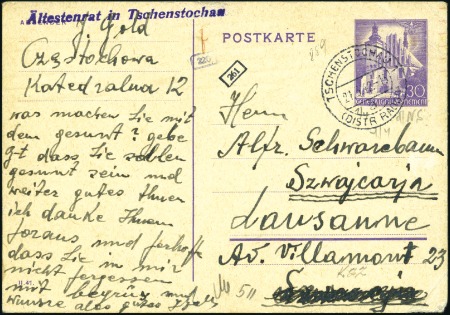 Ältestenrat in Tschenstochau
J. Gold
Częstochowa
Katedralna 12
was machen Sie mit
dem gesunt? gebe
g-t dass Sie sollen
gesunt sein und
weiter gutes Ihnen
ich danke Ihnen
foraus und ferhoffe
dass Sie in mir
nicht fergessen
mit begrüz und
wunsce ales gutes
POSTKARTE
859
228
261
TSCHENSTOCHAU
(DISTR. RA
30
GENERALGOUVERNEMENT
Herrn
Alfr. Schwarzbaum
Szwajcarja
Lausanne
Av. Villamont 23
511